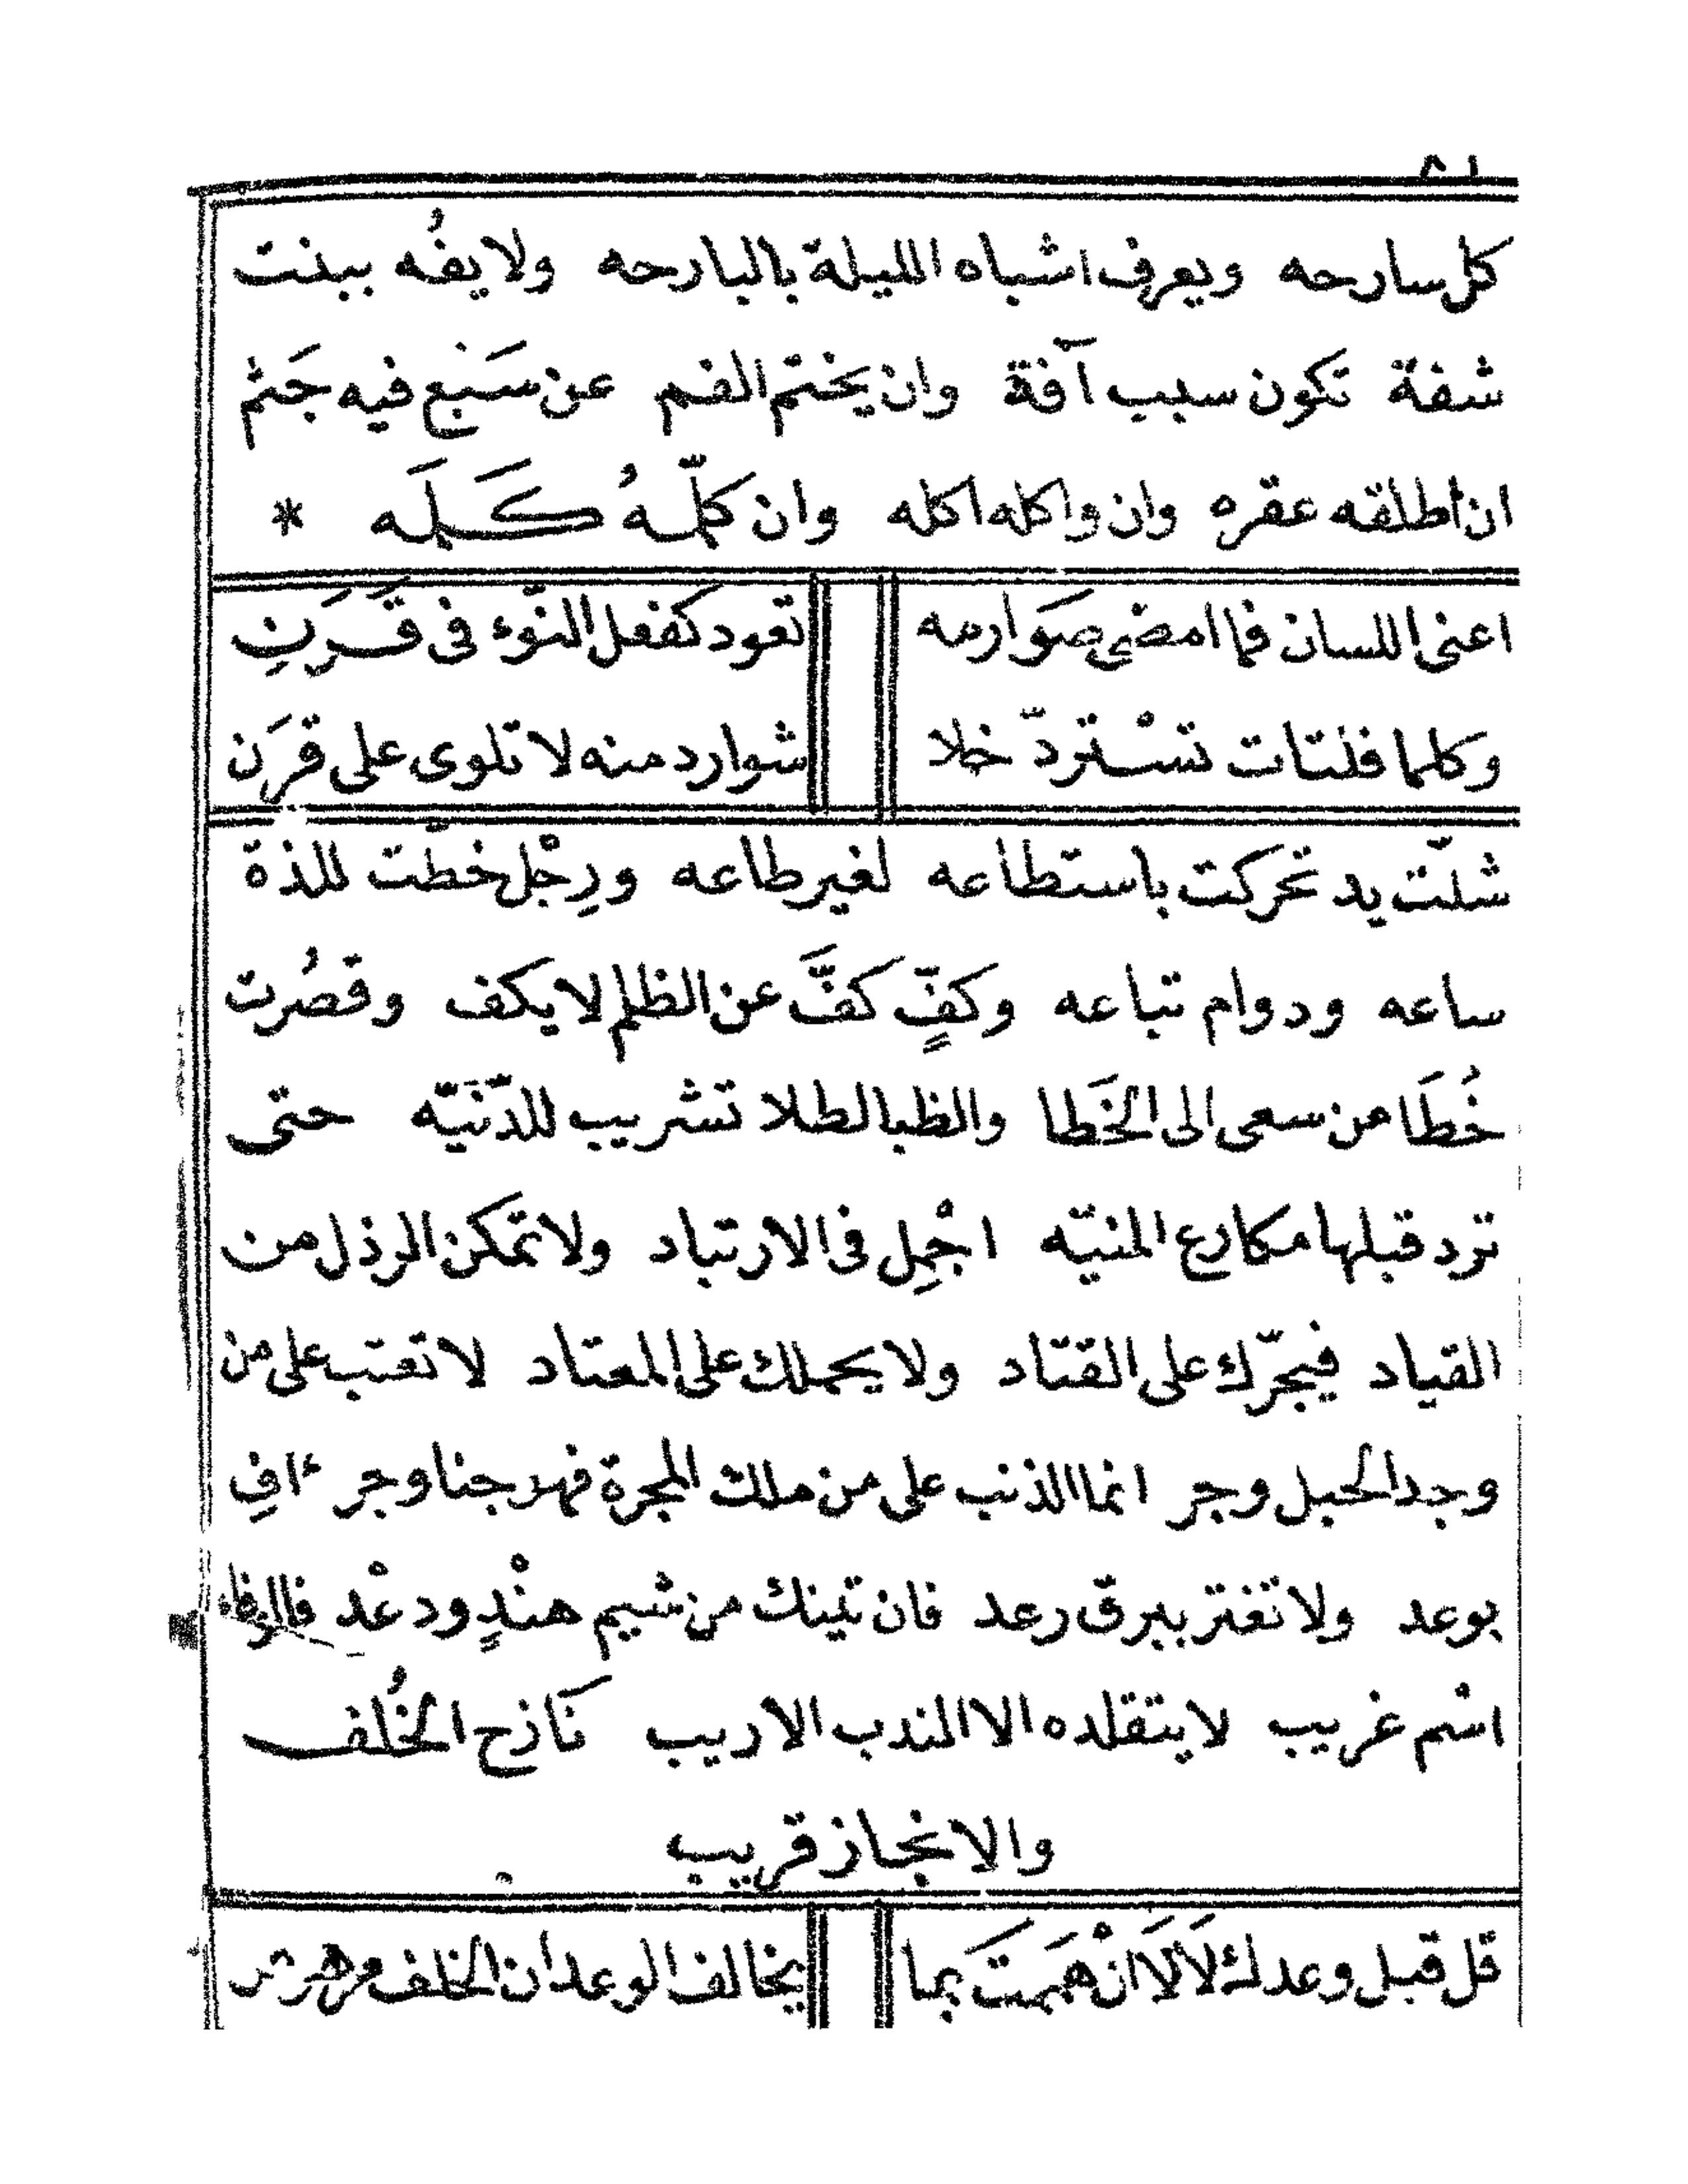 ٨١
كل سارحه ويعرف اشباه الليلة بالبارحه ولا يفُه ببنت
شفة تكون سبب آفة وان يختم الفم عن سَبع فيه جَثم
ان اطلقه عقره وان واكله اكله وان كلّـهُ كَـلَـه *
اعنى اللسان فما امضى صَوارمه تعود كفعل النّوء فى قَـرَنِ
وكلما فلتات تسْتردّ خلا شوارد منه لا تلوى على قرَن
شلّت يد تحركت باستطاعه لغير طاعه ورِجْل خطّت للذة
ساعه ودوام تباعه وكفٍّ كفَّ عن الظلم لا يكف وقصُرت
خُطَا من سعى الى الخَطا والظبا لطلا تشريب للدّنيّه حتى
ترد قبلها مكارع المنيّه اجْمِل فى الارتياد ولا تمكن الرذل من
القياد فيجرّك على القتاد ولا يحملك على المعتاد لا تعتب على من
وجد الحبل وجر انما الذنب على من ملك المجرة فهلا جنا وجر ءافِ
بوعد ولا تغتر ببرق رعد فان تمينك من شيم هنْدٍ ودعْد فالوفاء
اسْم غريب لا يتقلده الا الندب الاريب نَازح الخُلف
والانجاز قريب
قل قبل وعدك لَا لَا انْ هَمَمتَ بما يخالف الوعد ان الخلف من